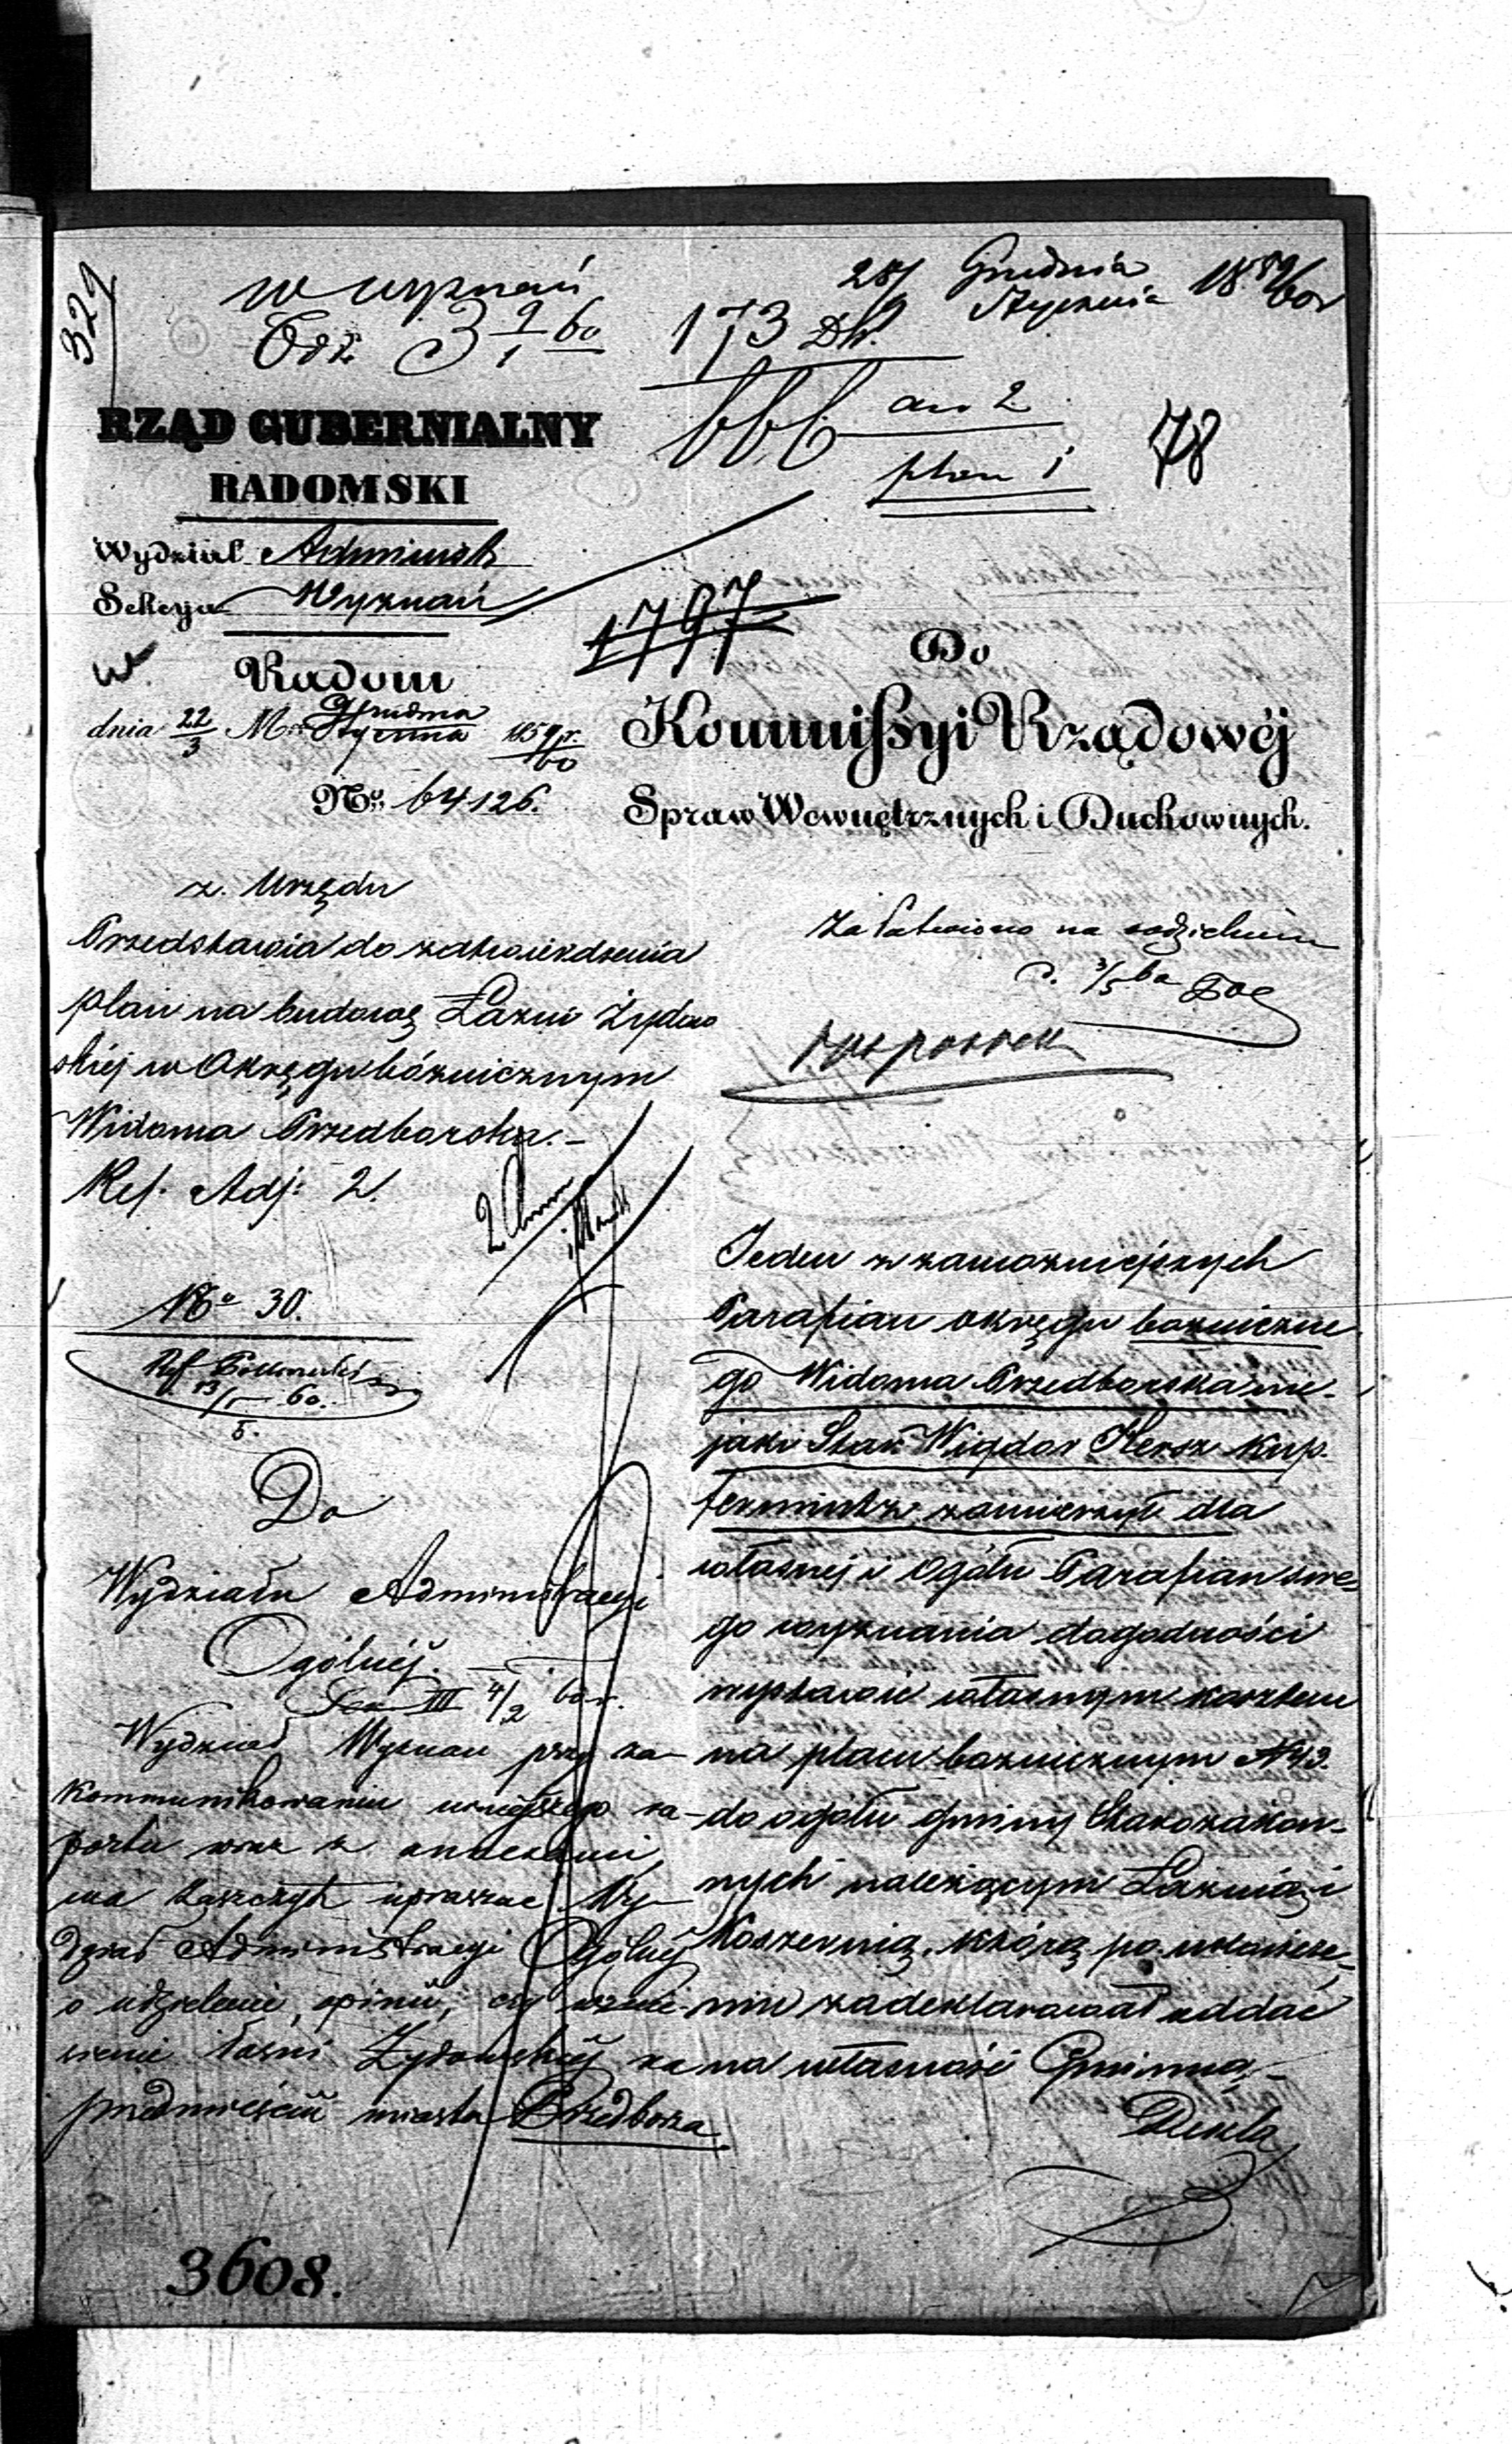 329
w wyznań
Odz. 3 9/1 60
28/ Grudnia
Stycznia 1859/60 r
173 Dh.
666 an 2
plan 1
78
RZĄD GUBERNIALNY
RADOMSKI
Wydział Administ.
Sekcya Wyznań
1797
w.
Radom
dnia 22/3 M. Grudnia
Stycznia 1859/60 r.
No. 64126.
Do
Kommissyi Rządowéj
Spraw Wewnętrznych i Duchownych.
z. Urzędu
Przedstawia do zatwierdzenia
plan na budowę Łazni Żydow
skiéj w Okręgu bóżnicznym
Widoma Przedborska. -
Ref. Adj: 2.
Załatwiono na
3/5 60
No 30.
Ref.
13/5 60.
Do
Wydziału Administracyi
Ogólnéj.
III 4/2 60 r.
Wydział Wyznań przy za-
kommunikowaniu ra-
portu wraz z annexami,
ma zaszczyt upraszać Wy-
dział Administracyi Ogólnéj
o udzielenie opinii, czy wznie-
sienie łaźni Żydowskiéj na
przedmieściu miasta Przedborza
Jeden z zamożniejszych
Parafian okręgu bożniczne-
go Widoma Przedborska nie-
jaki Star. Wigdor Hersz Kup-
fermintz zamierzył dla
własnej i Ogółu Parafian swe-
go wyznania dogodności
wystawić własnym kosztem
na placu bożnicznym N 43.
do ogółu gminy Starozakon-
nych należącym Łaznią i
Koszernią, którą po
niu zadeklarował oddać
na własność Gminną. -
Dukla
3608.